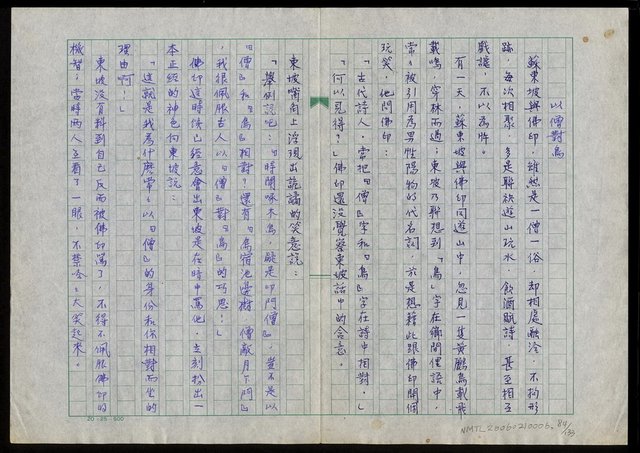 以僧對鳥
蘇東坡與佛印,雖然是一僧一俗,却相處融洽,不拘形
跡,每次相聚,多是聯袂遊山玩水,飲酒賦詩,甚至相互
戲謔,不以為忤。
有一天,蘇東坡與佛印同遊山中,忽見一隻黃鸝鳥載飛
載鳴,穿林而過;東坡乃聯想到「鳥」字在鄉間俚語中,
常々被引用為男性陽物的代名詞,於是想藉此跟佛印開個
玩笑,他問佛印:
「古代詩人,常把『僧』字和『鳥』字在詩中相對。」
「何以見得?」佛印還沒覺察東坡話中的含意。
東坡嘴角上浮現出詭譎的笑意說:
「舉例說吧:『時聞啄木鳥,疑是叩門僧』,豈不是以
『僧』和『鳥』相對?還有『鳥宿池邊樹,僧敲月下門』
,我很佩服古人以『僧』對『鳥』的巧思!」
佛印這時候已經意會出東坡是在暗中罵他,立刻扮出一
本正經的神色向東坡說:
「這就是我為什麼常々以『僧』的身份和你相對而坐的
理由啊!」
東坡沒有料到自己反而被佛印罵了,不得不佩服佛印的
機智;當時兩人互看了一眼,不禁哈々大笑起來。
20×25=500
NMTL20060210006
84/133